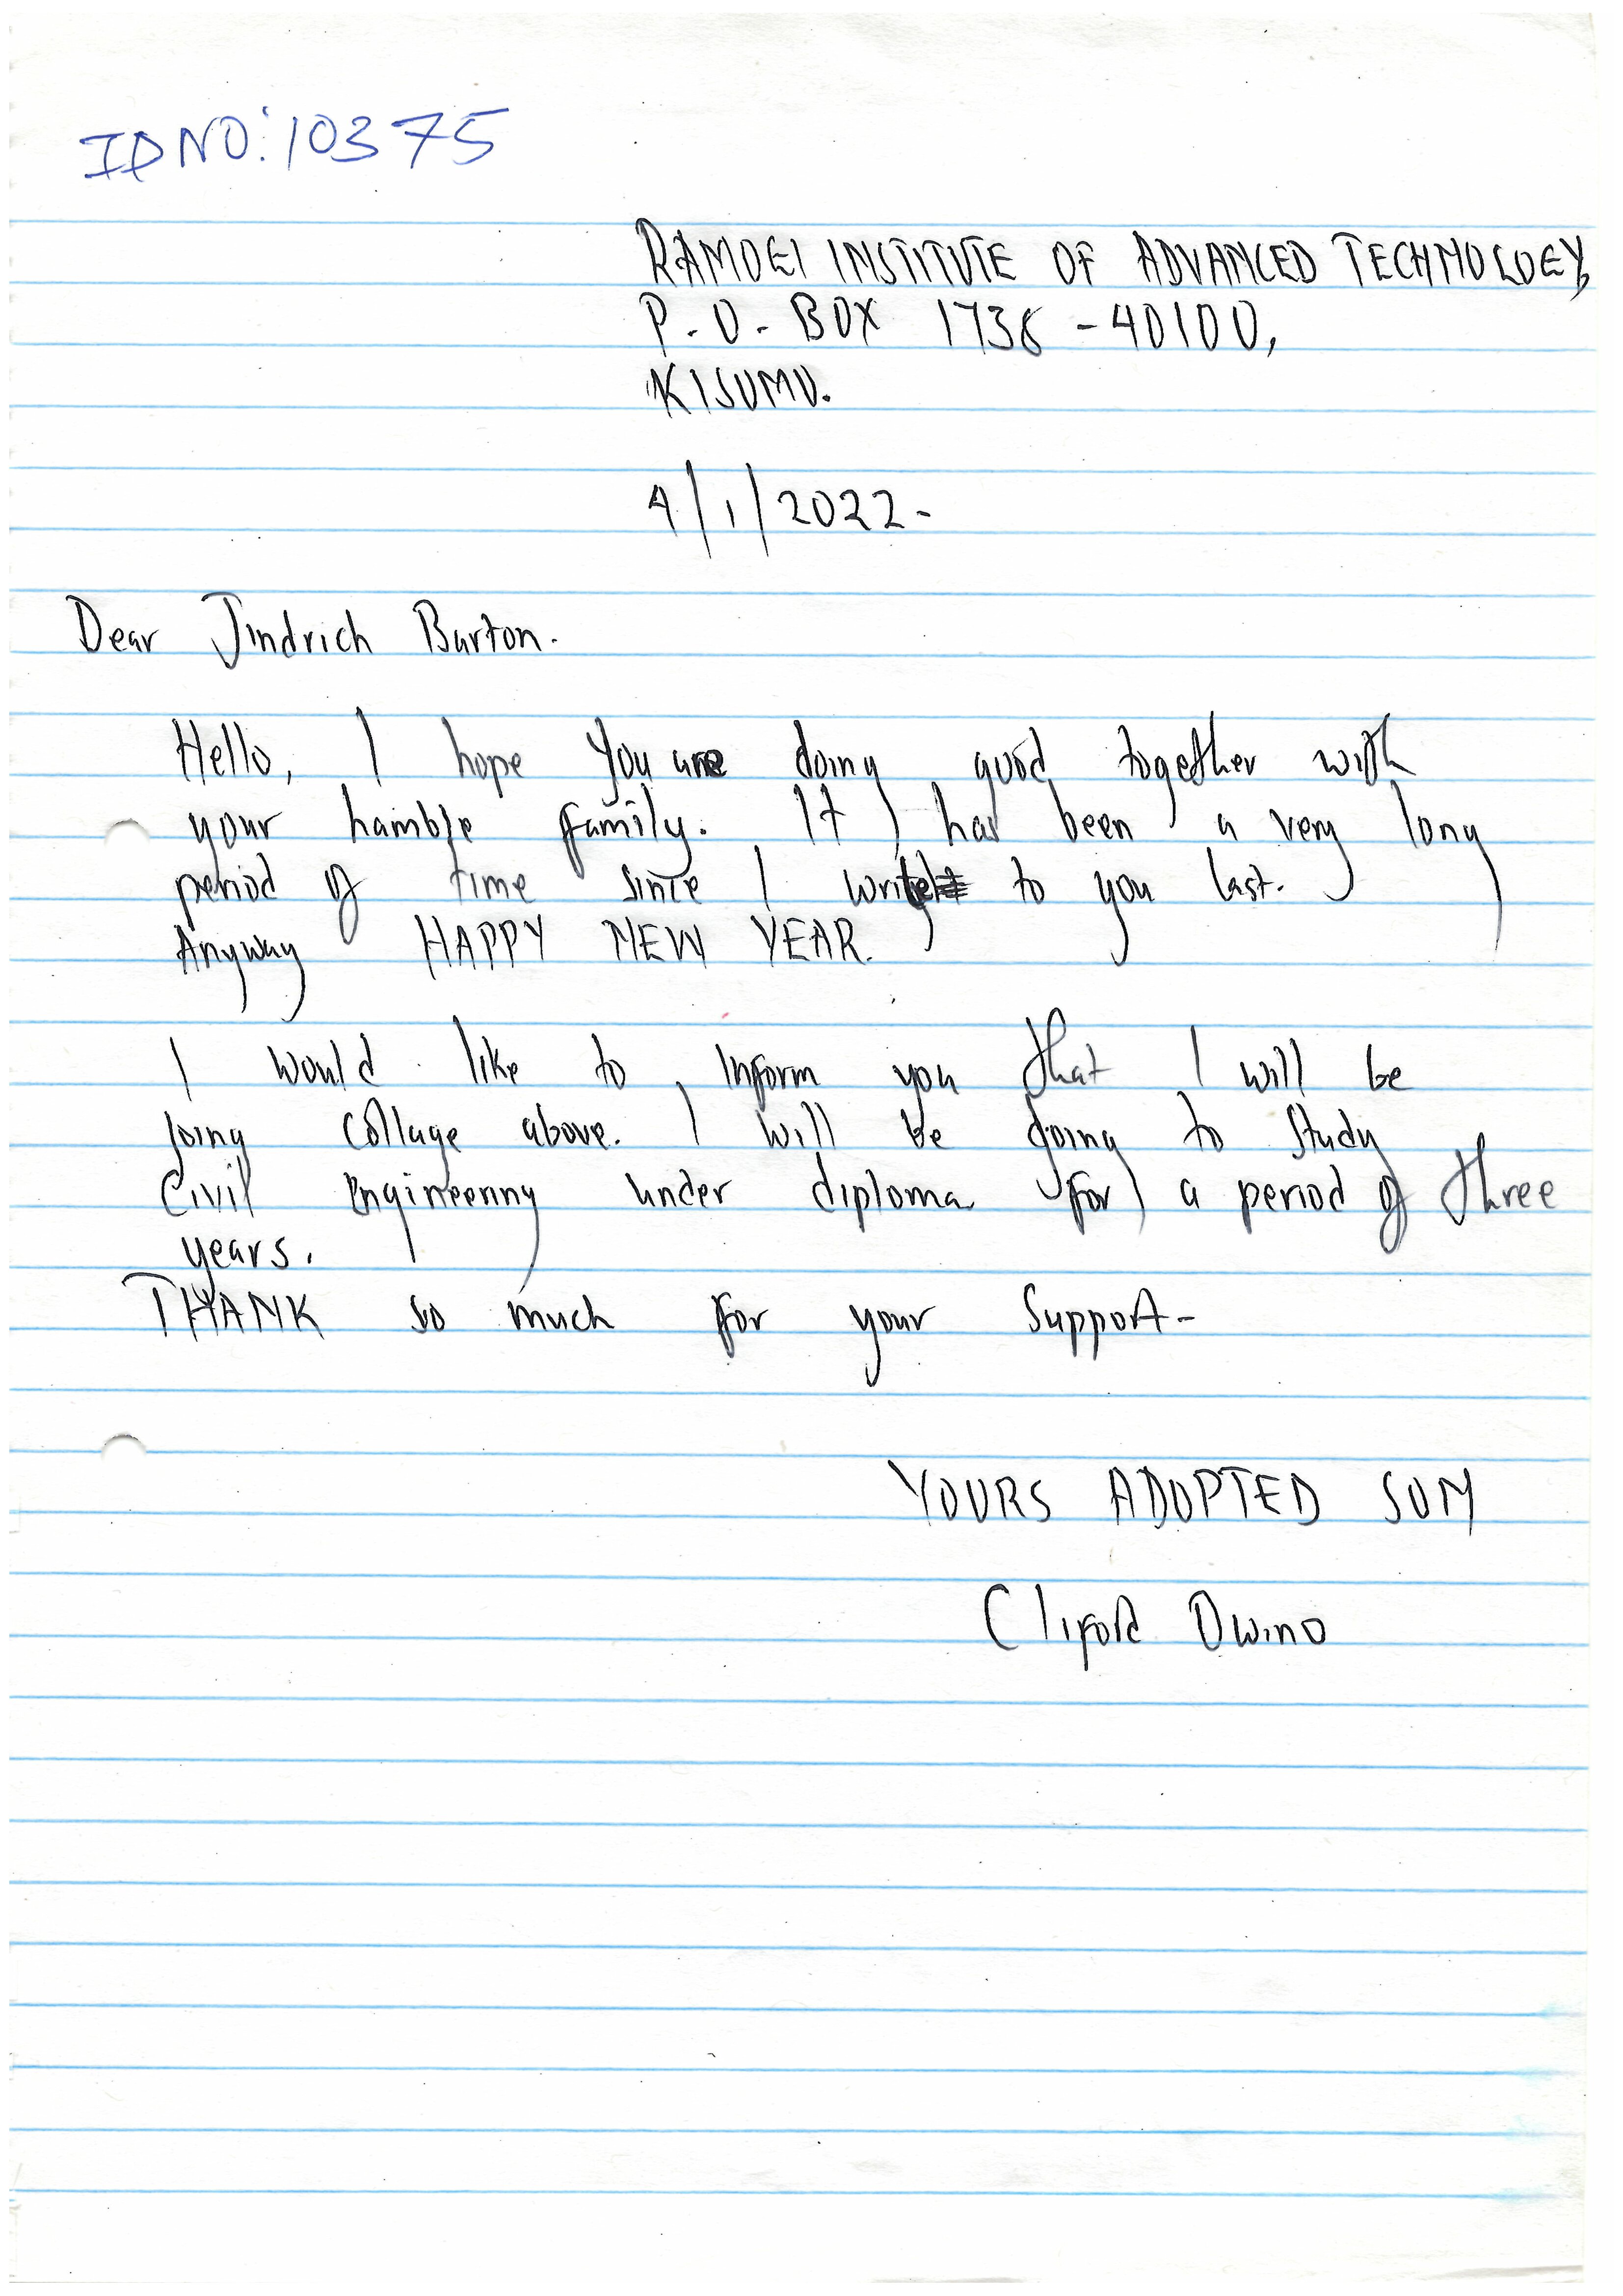 ID NO: 10375
RAMOGI INSTITUTE OF ADVANCED TECHNOLOGY,
P.O. BOX 1738 - 40100,
KISUMU.
4/1/2022.
Dear Jindrich Barton.
Hello, I hope you are doing good together with
your hamble family. It has been a very long
period of time since I write to you last.
Anyway HAPPY NEW YEAR.
I would like to inform you that I will be
joing collage above. I will be going to study
Civil Engineering under diploma for a period of three
years.
THANK so much for your support.
YOURS ADOPTED SON
Cliford Owino